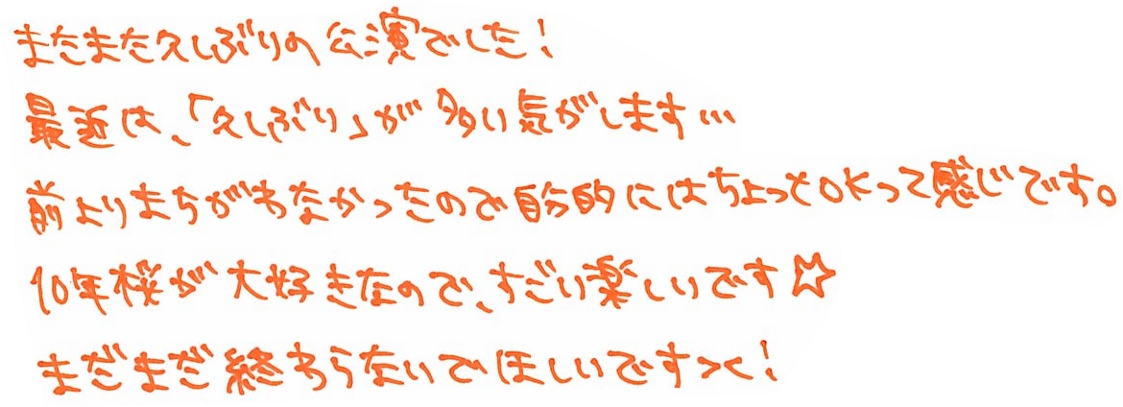 またまた久しぶりの公演でした!
最近は、「久しぶり」が多い気がします…
前よりまちがわなかったので自分的にはちょっとOKって感じです。
10年桜が大好きなので、すごい楽しいです☆
まだまだ終わらないでほしいです><!